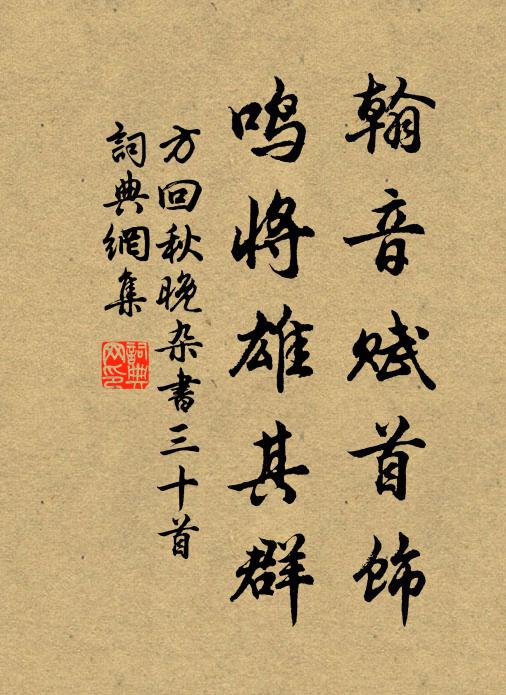 翰音赋首饰
鸣将雄其群
方回秋晚杂书三十首
詞典網集
詞典网印